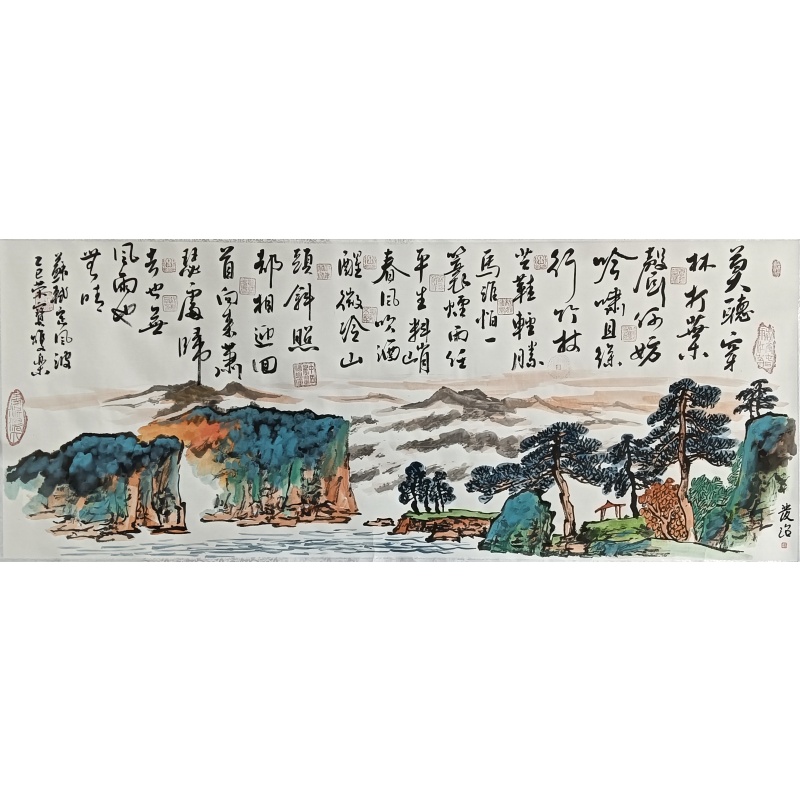 莫聽穿
林打葉
聲何妨
吟嘯且徐
行竹杖
芒鞵輕勝
馬誰怕一
蓑煙雨任
平生料峭
春風吹酒
醒微冷山
頭斜照
却相迎回
首向來蕭
瑟處歸
去也無
風雨也
無晴
蘇軾定風波
乙巳榮寶